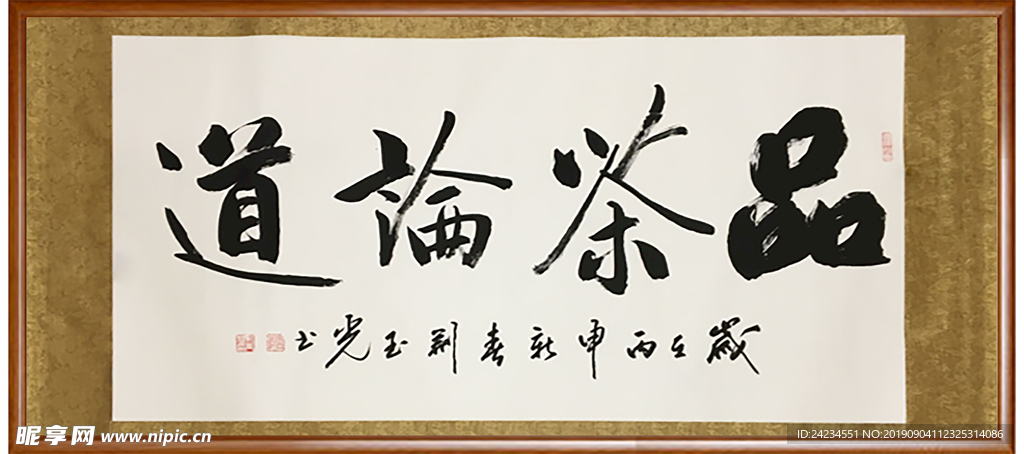 品茶論道
歲在丙申新春荆玉光书
昵享网 www.nipic.cn
ID:24234551 NO:20190904112325314086